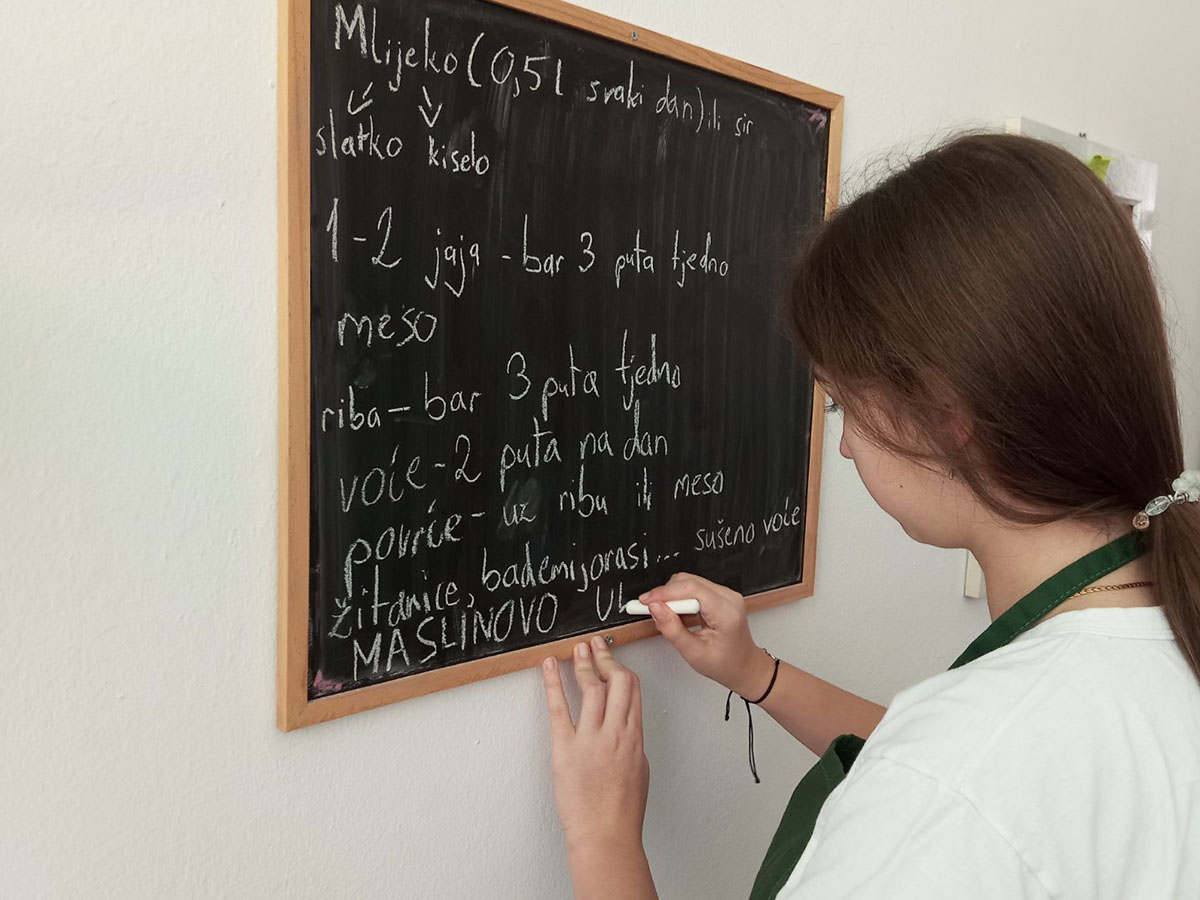 Mlijeko (0,5l svaki dan) ili sir
slatko kiselo
1-2 jaja - bar 3 puta tjedno
meso
riba - bar 3 puta tjedno
voće - 2 puta na dan
povrće - uz ribu ili meso
žitarice, bademi, orasi... sušeno voće
MASLINOVO UL